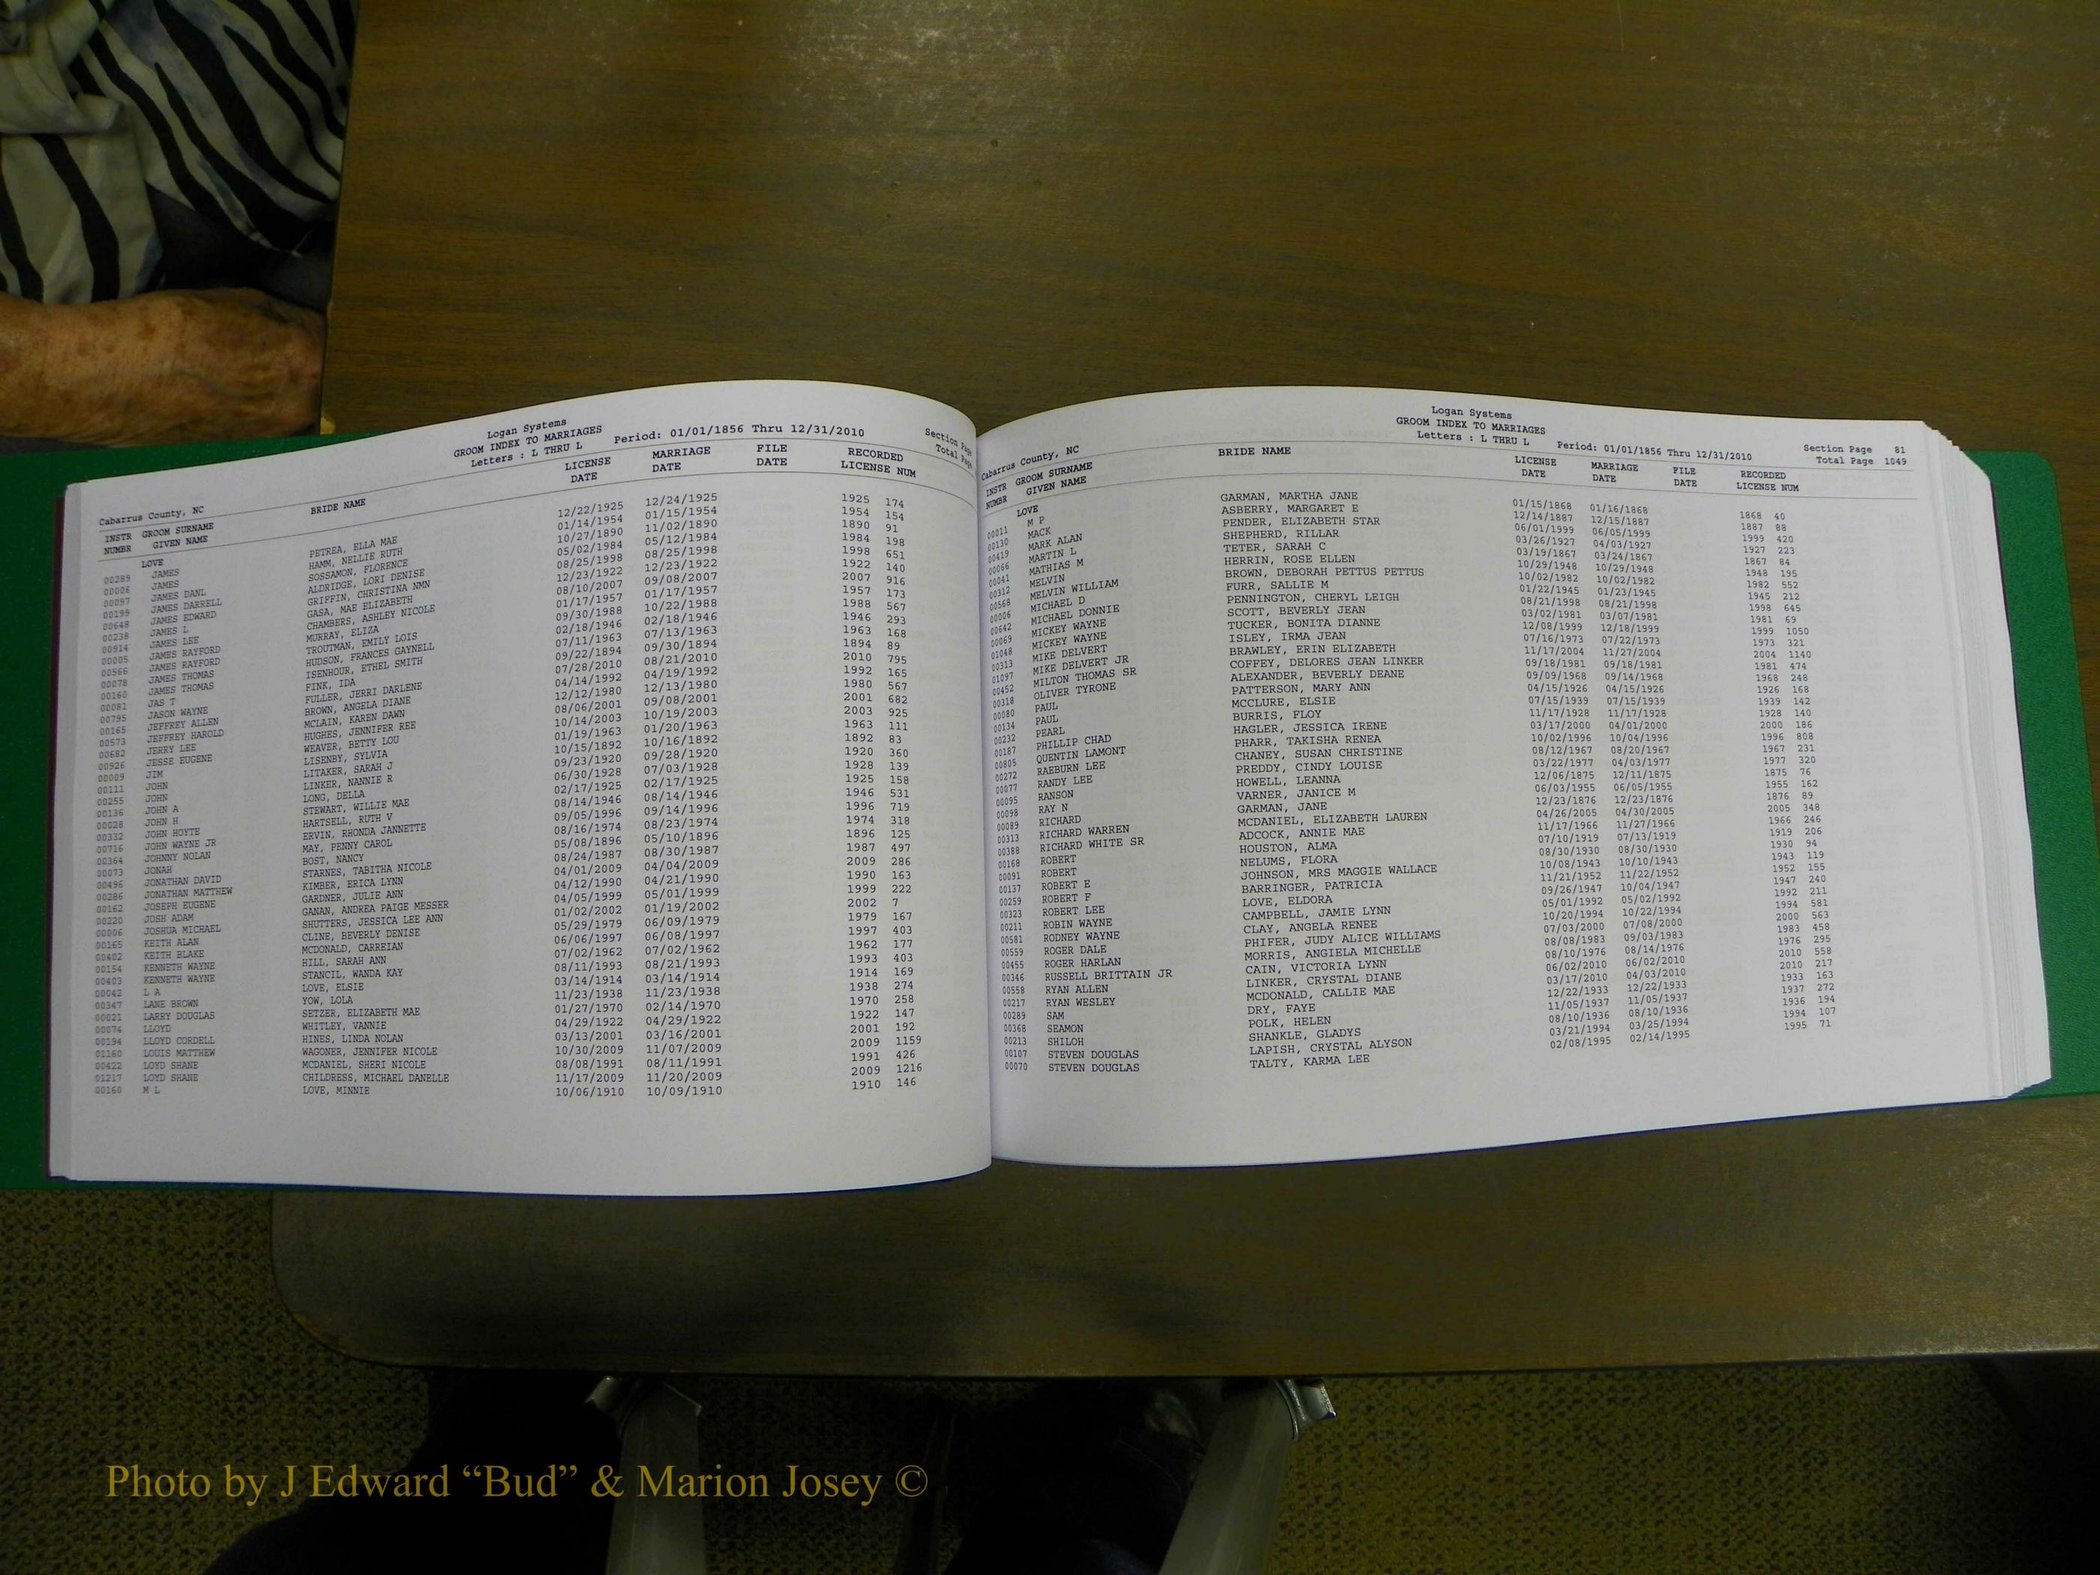 Logan Systems
GROOM INDEX TO MARRIAGES
Letters : L THRU L Period: 01/01/1856 Thru 12/31/2010 Section Page
Cabarrus County, NC Total Page
INSTR GROOM SURNAME BRIDE NAME LICENSE MARRIAGE FILE RECORDED
NUMBR GIVEN NAME DATE DATE DATE LICENSE NUM
LOVE
00289 JAMES PETREA, ELLA MAE 12/22/1925 12/24/1925 1925 174
00006 JAMES HAMM, NELLIE RUTH 01/14/1954 01/15/1954 1954 154
00097 JAMES DANL SOSSAMON, FLORENCE 10/27/1890 11/02/1890 1890 91
00199 JAMES DARRELL ALDRIDGE, LORI DENISE 05/02/1984 05/12/1984 1984 198
00648 JAMES EDWARD GRIFFIN, CHRISTINA NMN 08/25/1998 08/25/1998 1998 651
00238 JAMES L GASA, MAE ELIZABETH 12/23/1922 12/23/1922 1922 140
00914 JAMES LEE CHAMBERS, ASHLEY NICOLE 08/10/2007 09/08/2007 2007 916
00005 JAMES RAYFORD MURRAY, ELIZA 01/17/1957 01/17/1957 1957 173
00566 JAMES RAYFORD TROUTMAN, EMILY LOIS 09/30/1988 10/22/1988 1988 567
00078 JAMES THOMAS HUDSON, FRANCES GAYNELL 02/18/1946 02/18/1946 1946 293
00160 JAMES THOMAS ISENHOUR, ETHEL SMITH 07/11/1963 07/13/1963 1963 168
00081 JAS T FINK, IDA 09/22/1894 09/30/1894 1894 89
00795 JASON WAYNE FULLER, JERRI DARLENE 07/28/2010 08/21/2010 2010 795
00165 JEFFREY ALLEN BROWN, ANGELA DIANE 04/14/1992 04/19/1992 1992 165
00573 JEFFREY HAROLD MCLAIN, KAREN DAWN 12/12/1980 12/13/1980 1980 567
00682 JERRY LEE HUGHES, JENNIFER REE 08/06/2001 09/08/2001 2001 682
00926 JESSE EUGENE WEAVER, BETTY LOU 10/14/2003 10/19/2003 2003 925
00009 JIM LISENBY, SYLVIA 01/19/1963 01/20/1963 1963 111
00111 JOHN LITAKER, SARAH J 10/15/1892 10/16/1892 1892 83
00255 JOHN LINKER, NANNIE R 09/23/1920 09/28/1920 1920 360
00136 JOHN A LONG, DELLA 06/30/1928 07/03/1928 1928 139
00028 JOHN H STEWART, WILLIE MAE 02/17/1925 02/17/1925 1925 158
00332 JOHN HOYTE HARTSELL, RUTH V 08/14/1946 08/14/1946 1946 531
00716 JOHN WAYNE JR ERVIN, RHONDA JANNETTE 09/05/1996 09/14/1996 1996 719
00364 JOHNNY NOLAN MAY, PENNY CAROL 08/16/1974 08/23/1974 1974 318
00073 JONAH BOST, NANCY 05/08/1896 05/10/1896 1896 125
00496 JONATHAN DAVID STARNES, TABITHA NICOLE 08/24/1987 08/30/1987 1987 497
00286 JONATHAN MATTHEW KIMBER, ERICA LYNN 04/01/2009 04/04/2009 2009 286
00162 JOSEPH EUGENE GARDNER, JULIE ANN 04/12/1990 04/21/1990 1990 163
00220 JOSH ADAM GANAN, ANDREA PAIGE MESSER 04/05/1999 05/01/1999 1999 222
00006 JOSHUA MICHAEL SHUTTERS, JESSICA LEE ANN 01/02/2002 01/19/2002 2002 7
00165 KEITH ALAN CLINE, BEVERLY DENISE 05/29/1979 06/09/1979 1979 167
00402 KEITH BLAKE MCDONALD, CARREIAN 06/06/1997 06/08/1997 1997 403
00154 KENNETH WAYNE HILL, SARAH ANN 07/02/1962 07/02/1962 1962 177
00403 KENNETH WAYNE STANCIL, WANDA KAY 08/11/1993 08/21/1993 1993 403
00042 L A LOVE, ELSIE 03/14/1914 03/14/1914 1914 169
00347 LANE BROWN YOW, LOLA 11/23/1938 11/23/1938 1938 274
00021 LARRY DOUGLAS SETZER, ELIZABETH MAE 01/27/1970 02/14/1970 1970 258
00074 LLOYD WHITLEY, VANNIE 04/29/1922 04/29/1922 1922 147
00194 LLOYD CORDELL HINES, LINDA NOLAN 03/13/2001 03/16/2001 2001 192
01160 LOUIS MATTHEW WAGONER, JENNIFER NICOLE 10/30/2009 11/07/2009 2009 1159
00422 LOYD SHANE MCDANIEL, SHERI NICOLE 08/08/1991 08/11/1991 1991 426
01217 LOYD SHANE CHILDRESS, MICHAEL DANELLE 11/17/2009 11/20/2009 2009 1216
00160 M L LOVE, MINNIE 10/06/1910 10/09/1910 1910 146
Logan Systems
GROOM INDEX TO MARRIAGES
Letters : L THRU L Period: 01/01/1856 Thru 12/31/2010 Section Page 81
Cabarrus County, NC Total Page 1049
INSTR GROOM SURNAME BRIDE NAME LICENSE MARRIAGE FILE RECORDED
NUMBR GIVEN NAME DATE DATE DATE LICENSE NUM
LOVE
00011 M P GARMAN, MARTHA JANE 01/15/1868 01/16/1868 1868 40
00130 MACK ASBERRY, MARGARET E 12/14/1887 12/15/1887 1887 88
00419 MARK ALAN PENDER, ELIZABETH STAR 06/01/1999 06/05/1999 1999 420
00066 MARTIN L SHEPHERD, RILLAR 03/26/1927 04/03/1927 1927 223
00041 MATHIAS M TETER, SARAH C 03/19/1867 03/24/1867 1867 84
00312 MELVIN HERRIN, ROSE ELLEN 10/29/1948 10/29/1948 1948 195
00568 MELVIN WILLIAM BROWN, DEBORAH PETTUS PETTUS 10/02/1982 10/02/1982 1982 552
00006 MICHAEL D FURR, SALLIE M 01/22/1945 01/23/1945 1945 212
00642 MICHAEL DONNIE PENNINGTON, CHERYL LEIGH 08/21/1998 08/21/1998 1998 645
00069 MICKEY WAYNE SCOTT, BEVERLY JEAN 03/02/1981 03/07/1981 1981 69
01048 MICKEY WAYNE TUCKER, BONITA DIANNE 12/08/1999 12/18/1999 1999 1050
00313 MIKE DELVERT ISLEY, IRMA JEAN 07/16/1973 07/22/1973 1973 321
01097 MIKE DELVERT JR BRAWLEY, ERIN ELIZABETH 11/17/2004 11/27/2004 2004 1140
00452 MILTON THOMAS SR COFFEY, DELORES JEAN LINKER 09/18/1981 09/18/1981 1981 474
00318 OLIVER TYRONE ALEXANDER, BEVERLY DEANE 09/09/1968 09/14/1968 1968 248
00080 PAUL PATTERSON, MARY ANN 04/15/1926 04/15/1926 1926 168
00134 PAUL MCCLURE, ELSIE 07/15/1939 07/15/1939 1939 142
00232 PEARL BURRIS, FLOY 11/17/1928 11/17/1928 1928 140
00187 PHILLIP CHAD HAGLER, JESSICA IRENE 03/17/2000 04/01/2000 2000 186
00805 QUENTIN LAMONT PHARR, TAKISHA RENEA 10/02/1996 10/04/1996 1996 808
00272 RAEBURN LEE CHANEY, SUSAN CHRISTINE 08/12/1967 08/20/1967 1967 231
00077 RANDY LEE PREDDY, CINDY LOUISE 03/22/1977 04/03/1977 1977 320
00095 RANSON HOWELL, LEANNA 12/06/1875 12/11/1875 1875 76
00098 RAY N VARNER, JANICE M 06/03/1955 06/05/1955 1955 162
00089 RICHARD GARMAN, JANE 12/23/1876 12/23/1876 1876 89
00313 RICHARD WARREN MCDANIEL, ELIZABETH LAUREN 04/26/2005 04/30/2005 2005 348
00388 RICHARD WHITE SR ADCOCK, ANNIE MAE 11/17/1966 11/27/1966 1966 246
00168 ROBERT HOUSTON, ALMA 07/10/1919 07/13/1919 1919 206
00091 ROBERT NELUMS, FLORA 08/30/1930 08/30/1930 1930 94
00137 ROBERT E JOHNSON, MRS MAGGIE WALLACE 10/08/1943 10/10/1943 1943 119
00259 ROBERT F BARRINGER, PATRICIA 11/21/1952 11/22/1952 1952 155
00323 ROBERT LEE LOVE, ELDORA 09/26/1947 10/04/1947 1947 240
00211 ROBIN WAYNE CAMPBELL, JAMIE LYNN 05/01/1992 05/02/1992 1992 211
00581 RODNEY WAYNE CLAY, ANGELA RENEE 10/20/1994 10/22/1994 1994 581
00559 ROGER DALE PHIFER, JUDY ALICE WILLIAMS 07/03/2000 07/08/2000 2000 563
00455 ROGER HARLAN MORRIS, ANGIELA MICHELLE 08/08/1983 09/03/1983 1983 458
00346 RUSSELL BRITTAIN JR CAIN, VICTORIA LYNN 08/10/1976 08/14/1976 1976 295
00558 RYAN ALLEN LINKER, CRYSTAL DIANE 06/02/2010 06/02/2010 2010 558
00217 RYAN WESLEY MCDONALD, CALLIE MAE 03/17/2010 04/03/2010 2010 217
00289 SAM DRY, FAYE 12/22/1933 12/22/1933 1933 163
00368 SEAMON POLK, HELEN 11/05/1937 11/05/1937 1937 272
00213 SHILOH SHANKLE, GLADYS 08/10/1936 08/10/1936 1936 194
00107 STEVEN DOUGLAS LAPISH, CRYSTAL ALYSON 03/21/1994 03/25/1994 1994 107
00070 STEVEN DOUGLAS TALTY, KARMA LEE 02/08/1995 02/14/1995 1995 71
Photo by J Edward “Bud” & Marion Josey ©